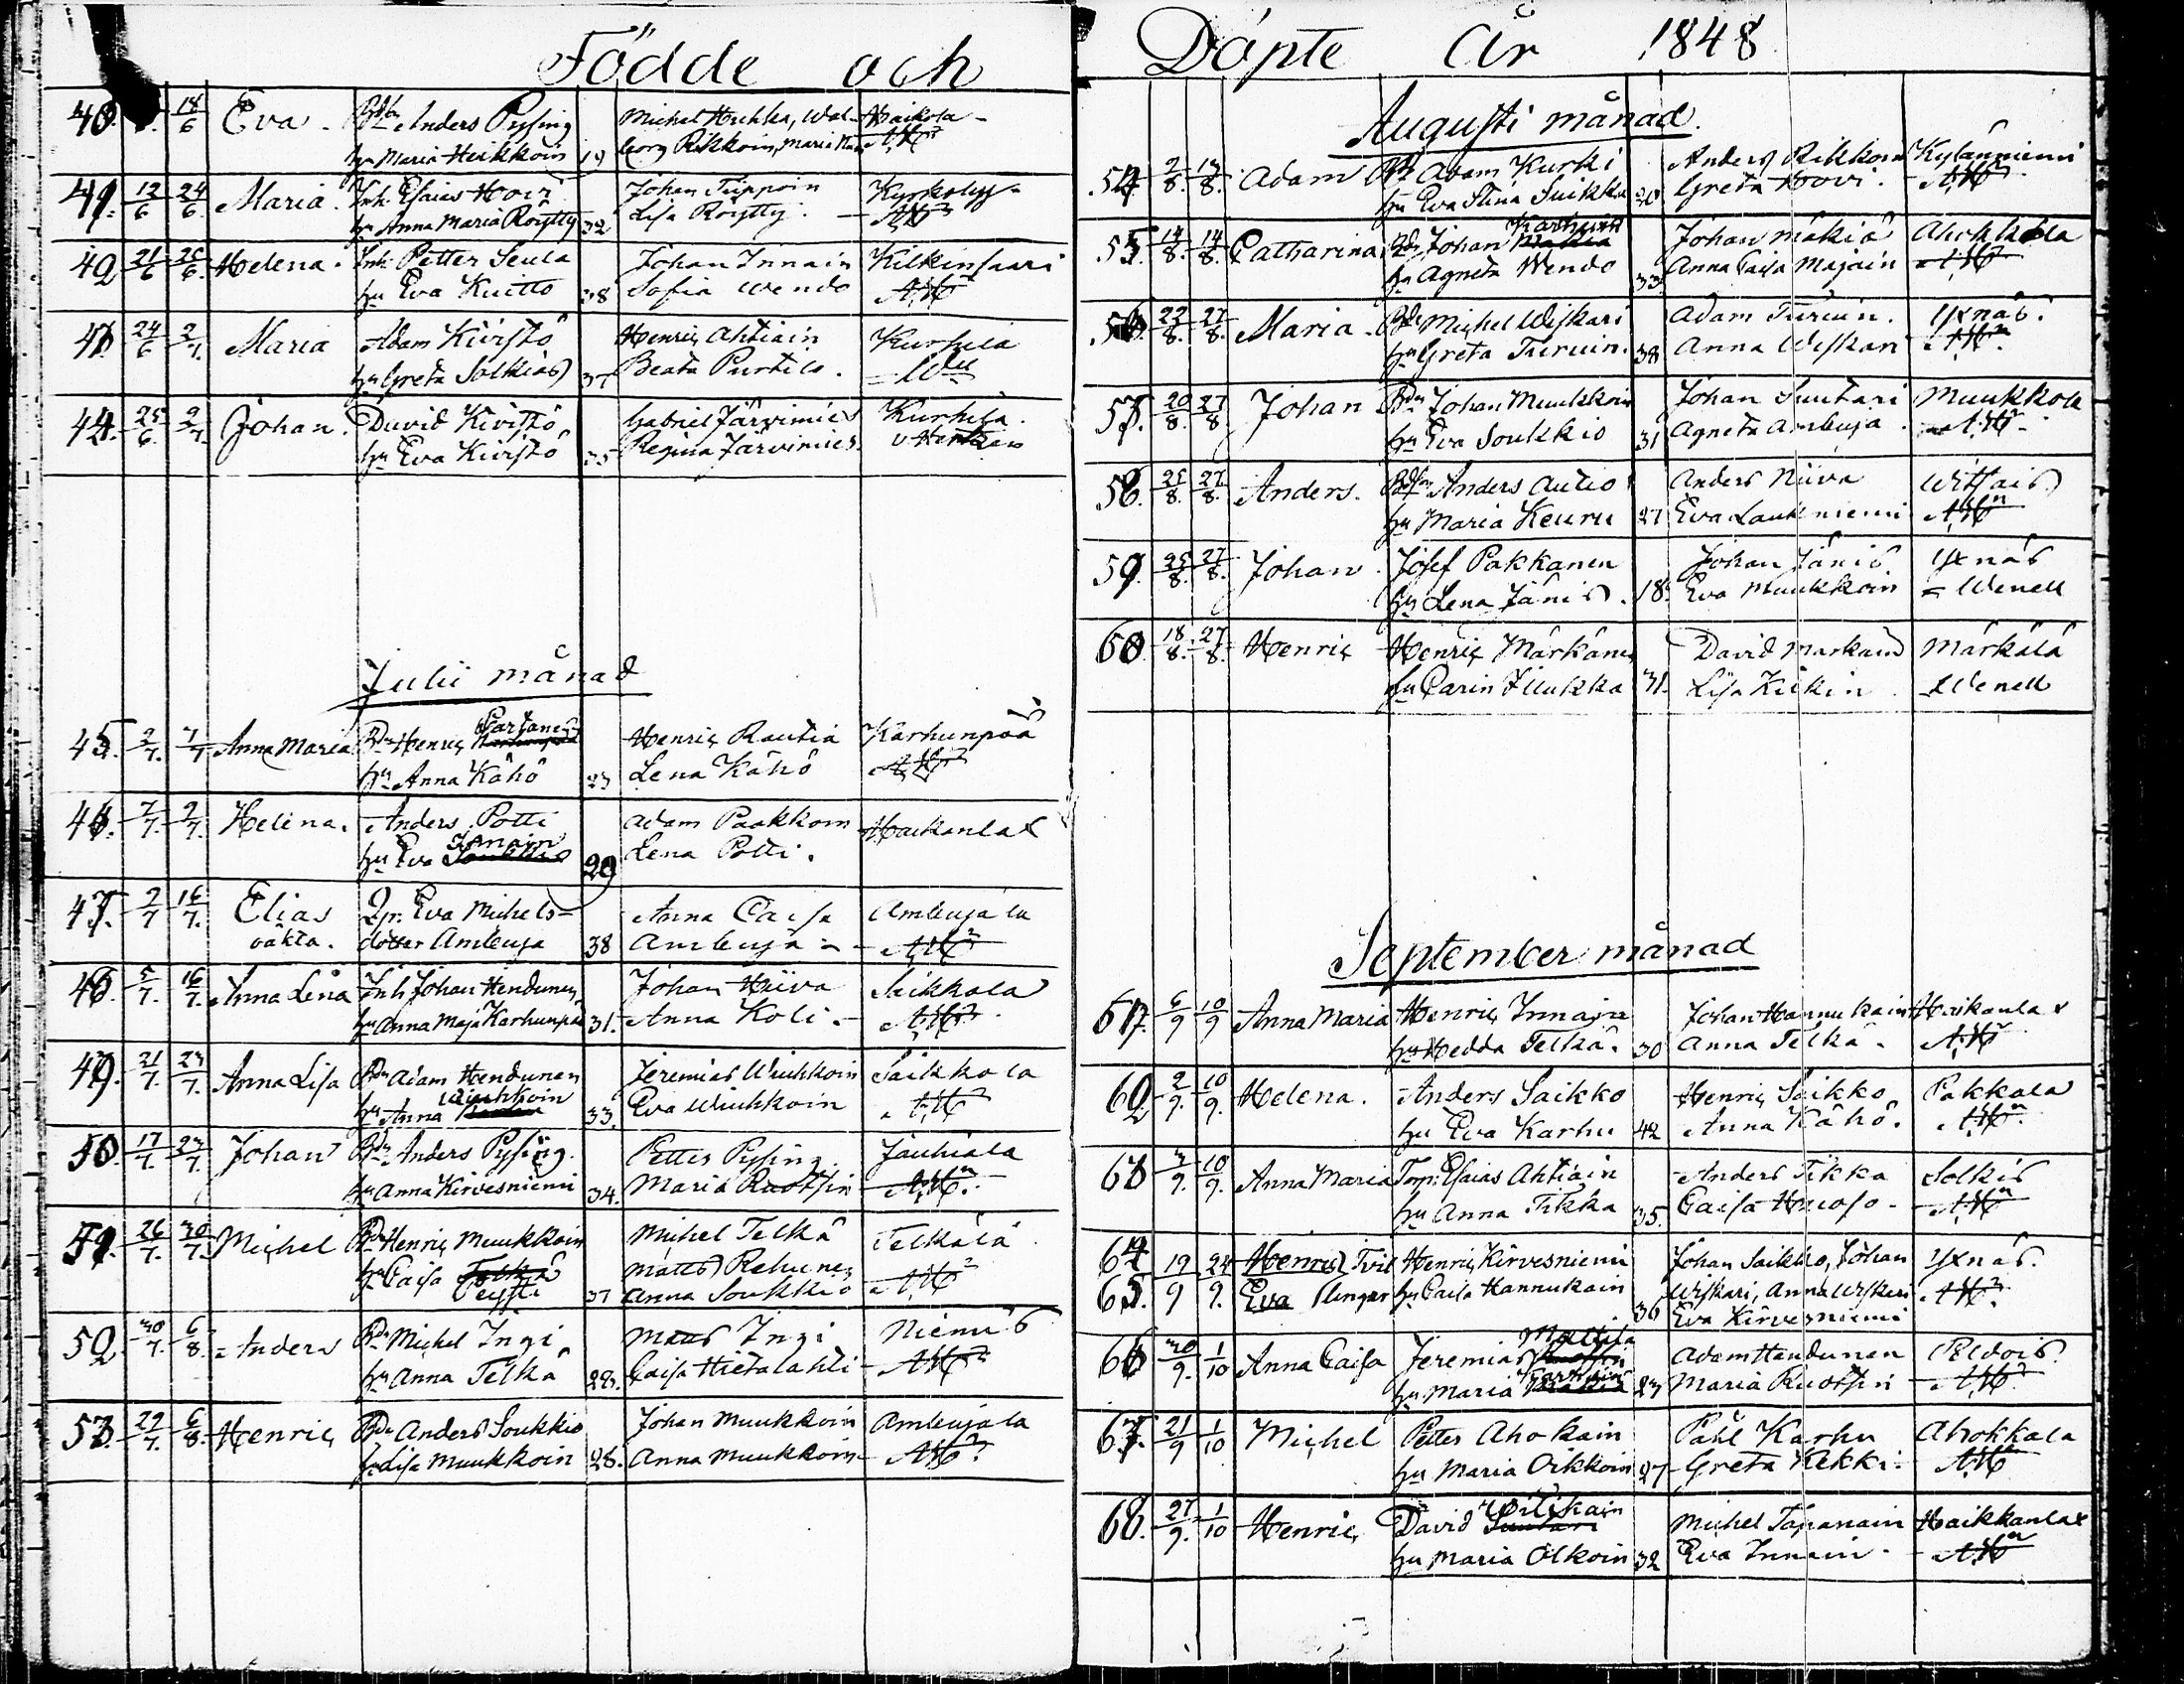 Födde och
40. 18/6 Eva. Anders Pysing Michel Huhka, Wal- Haikola
hu Maria Heikkoin 19 Georg Rikkoin, Maria
41. 12/6 24/6 Maria. Inh. Esaias Hovi Johan Tiippoin Kurkoby
hu Anna Maria Röytty 32 Lisa Röytty.
42 21/6 26/6 Helena. Inh. Petter Seula Johan Innain Kilkinsaari
hu Eva Kuitto 38 Sofia Wendo
43 24/6 2/7 Maria Adam Kivistö Henric Ahtiain Kurhila
hu Greta Solkias 37 Beata Purtilo.
44. 25/6 2/7 Johan. David Kivistö Gabriel Järvimies Kurhila.
hu Eva Kivistö 35 Regina Järvimies.
Julii månad
45. 2/7. 7/7 Anna Maria Bdn Henric Partanen Henric Rautia Karhunpää
hu Anna Kähö 23 Lena Kähö
46. 7/7. 9/7. Helena. Anders Potti Adam Paakkoin Haikanla
hu Eva Innain 29 Lena Potti.
47. 9/7 16/7. Elias Qpr. Eva Michels- Anna Caisa Ambujala
oäkta. dotter Ambuja 38 Ambuja
48. 5/7. 16/7. Anna Lena Inh Johan Hendunen Johan Hüva Saikkala
hu Anna Maja Karhunpää 31. Anna Koli.
49. 21/7. 23/7. Anna Lisa Bdn Adam Hendunen Jeremias Wiuhkoin Saikkola
hu Anna Wiuhkoin 33. Eva Wiuhkoin
50. 17/7. 23/7. Johan Bdn Anders Pysing. Petter Pysing Jäuhiälä
hu Anna Kirvesniemi 34. Maria Ruotsin
51. 26/7. 30/7. Michel Bdn Henric Muukkoin Michel Telkä Telkälä
hu Caisa Telkä Matts Rehunen
Peysti 37 Anna Soukkio
52. 30/7. 6/8. Anders Bdn Michel Ingi Matts Ingi Niemis
hu Anna Telkä 28. Caisa Hietalahti
53. 29/7. 6/8. Henric Bdn Anders Soukkio Johan Muukkoin Ambujala
hu Lisa Muukkoin 28. Anna Muukkoin
Döpte År 1848
Augusti månad.
54. 2/8. 13/8. Adam Adam Kurki Anders Rikkoin Kylänniemi
hu Eva Stina Suikka 20 Greta Hovi.
55. 14/8. 14/8. Catharina Johan Karhuin Johan Mäkiä Ahokkala
hu Agneta Wendo 33 Anna Caisa Majain
56. 22/8. 27/8. Maria. Michel Wiskari Adam Turuin. Yxnäs.
hu Greta Turuin. 38 Anna Wiskari
57. 20/8. 27/8 Johan Bdn Johan Muukkoin Johan Suutari Muukkola
hu Eva Soukkio 31 Agneta Ambuja
58. 25/8. 27/8. Anders. Anders Autio Anders Niiva Witsais
hu Maria Keuru 27 Eva Laukniemi
59. 25/8. 27/8. Johan. Josef Pakkanen Johan Jänis Yxnäs
hu Lena Jänis. 18. Eva Muukkoin Wenell
60. 18/8. 27/8. Henric Henric Märkänen David Markaus Märkälä
hu Carin Ilukka 31. Lisa Kilkin Wenell
September månad
61. 6/9 10/9 Anna Maria Henric Innain Johan Hannukain Haikanla
hu Hedda Telkä. 30 Anna Telkä.
62. 2/9. 10/9. Helena. Anders Saikko Henric Saikko Pakkala
hu Eva Karhu 42 Anna Kähö.
63 3/9. 10/9. Anna Maria Torp. Esaias Ahtiain Anders Tikka Solkis
hu Anna Tikka 35. Caisa Huoso
64 19/9 24/9. Henric Tvil Henric Kirvesniemi Johan Saikko, Johan Yxnäs.
65. Eva lingar hu Caisa Hannukain 36 Wiskari, Anna Wiskari
Eva Kirvesniemi
66 30/9. 1/10 Anna Caisa Jeremias Mattila Adam Hendunen Peldois.
hu Maria Karhuin 23 Maria Ruotsin
67. 21/9 1/10 Michel Petter Ahokain Påhl Karhu Ahokkala
hu Maria Oikkoin 27 Greta Kekki
68. 27/9. 1/10 Henric David Michel Tapanain Haikkanla
hu Maria Olkoin 32 Eva Innain.